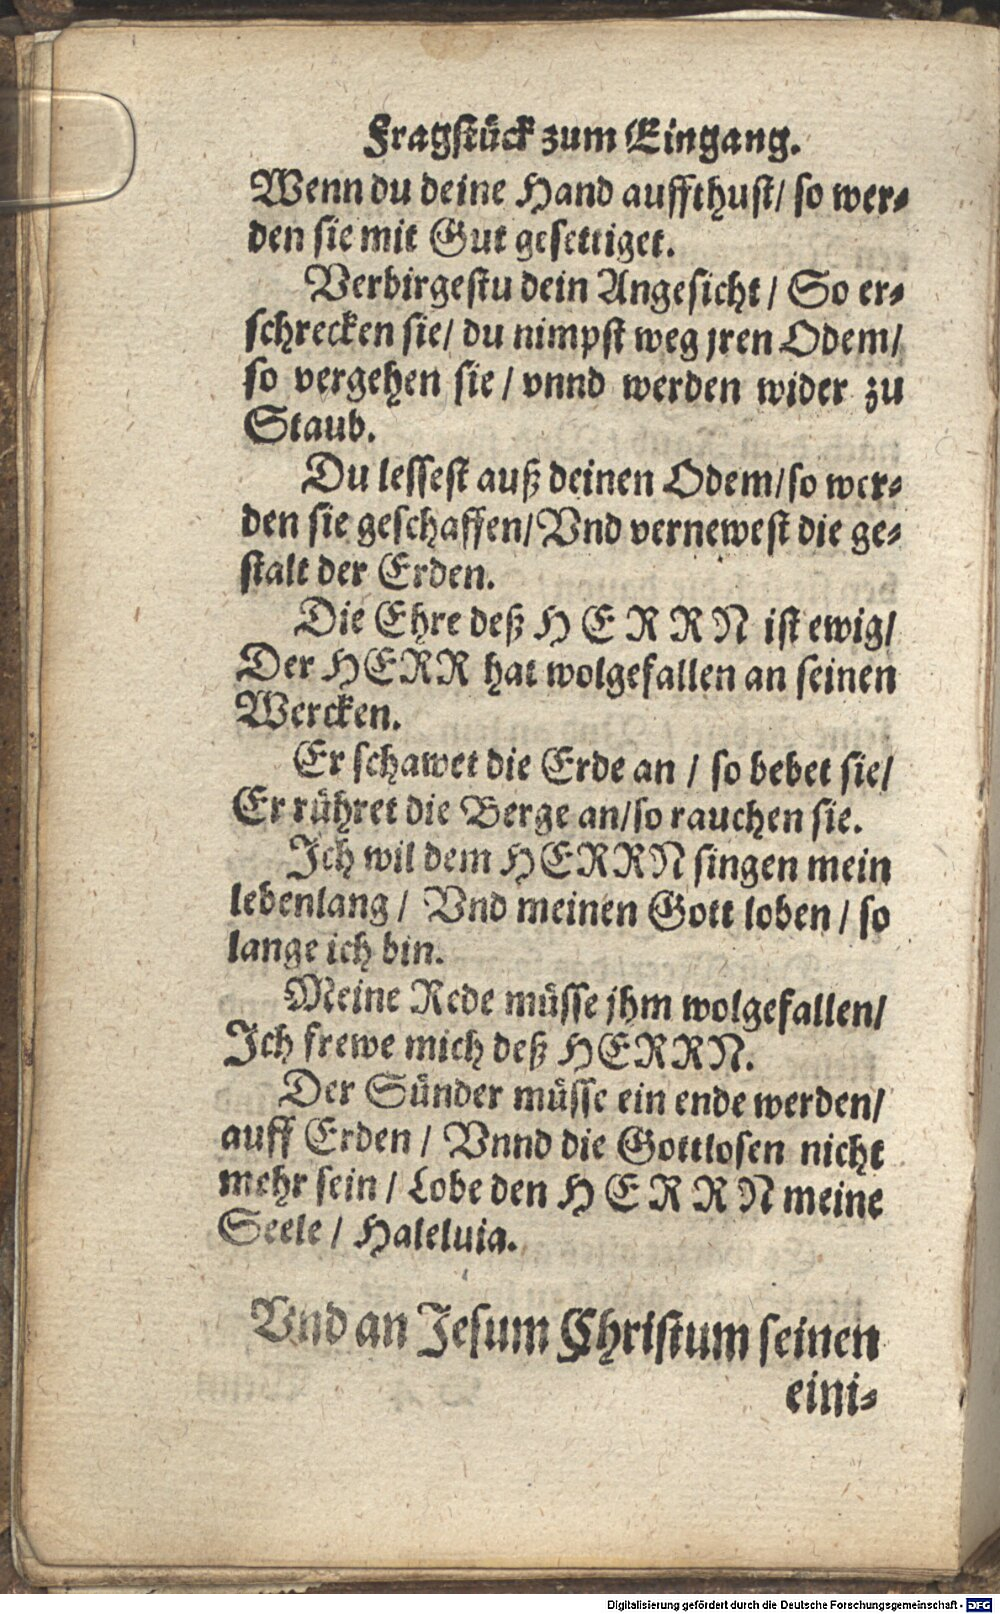 Fragstück zum Eingang.
Wenn du deine Hand auffthust/ so wer⸗
den sie mit Gut gesettiget.
Verbirgestu dein Angesicht / So er⸗
schrecken sie/ du nimpst weg jren Odem/
so vergehen sie / vnnd werden wider zu
Staub.
Du lessest auß deinen Odem/so wer⸗
den sie geschaffen/Vnd vernewest die ge⸗
stalt der Erden.
Die Ehre deß HERRN ist ewig/
Der HERR hat wolgefallen an seinen
Wercken.
Er schawet die Erde an / so bebet sie/
Er rühret die Berge an/so rauchen sie.
Ich wil dem HERRN singen mein
lebenlang / Vnd meinen Gott loben / so
lange ich bin.
Meine Rede müsse jhm wolgefallen/
Ich frewe mich deß HERRN.
Der Sünder müsse ein ende werden/
auff Erden / Vnnd die Gottlosen nicht
mehr sein / Lobe den HERRN meine
Seele / Haleluia.
Vnd an Jesum Christum seinen
eini⸗
Digitalisierung gefördert durch die Deutsche Forschungsgemeinschaft - DFG